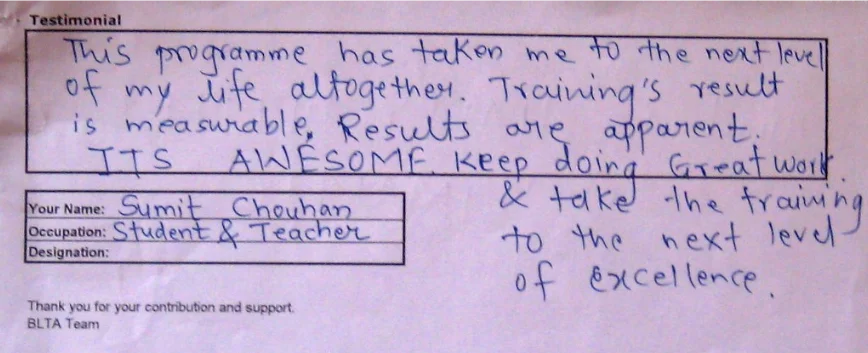 Testimonial
This programme has taken me to the next level
of my life altogether. Training's result
is measurable, Results are apparent.
ITS AWESOME. Keep doing Great work.
& take the training
to the next level
of excellence.
Your Name: Sumit Chouhan
Occupation: Student & Teacher
Designation:
Thank you for your contribution and support.
BLTA Team